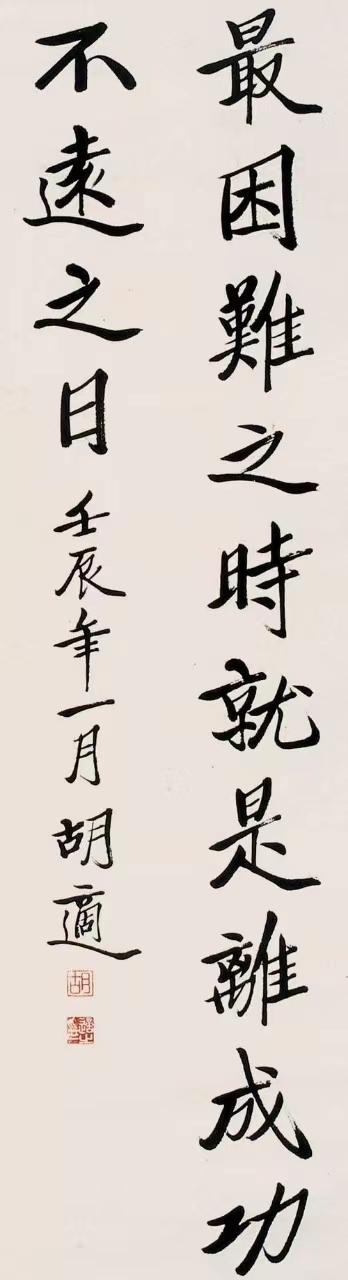 最困難之時就是離成功
不遠之日
壬辰年一月胡適
胡